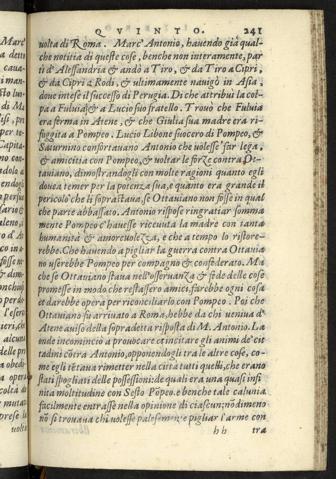 QVINTO. 241
volta di Roma. Marc'Antonio, hauendo già qual=
che notitia di queste cose, benche non interamente, par
tì d'Alessandria & andò a Tiro, & da Tiro a Cipri,
& da Cipri a Rodi, & vltimamente nauigò in Asia,
doue intese il successo di Perugia. Di che attribuì la col-
pa a Fuluia & a Lucio suo fratello. Trouò che Fuluia
era ferma in Atene, & che Giulia sua madre era ri=
fuggita a Pompeo. Lucio Libone suocero di Pompeo, &
Saturnino confortauano Antonio che volesse far lega,
& amicitia con Pompeo, & voltar le forze contra Ot-
tauiano, dimostrandogli con molte ragioni quanto egli
douea temer per la potenza sua, e quanto era grande il
pericolo che li soprastaua, se Ottauiano non fosse in qual
che parte abbassato. Antonio rispose ringratiar somma
mente Pompeo c'hauesse riceuuta la madre con tanta
humanità & amoreuolezza, e che a tempo lo ristore-
rebbe. Che hauendo a pigliar la guerra contra Ottauia
no vserebbe Pompeo per compagno & confederato. Ma
che se Ottauiano staua nell'osseruanza & fede delle cose
promesse in modo che restassero amici, farebbe ogni cosa
et darebbe opera per riconciliarlo con Pompeo. Poi che
Ottauiano fu arriuato a Roma, hebbe da chi veniua d'
Atene auiso della sopradetta risposta di M. Antonio. La
onde incominciò a prouocare et incitare gli animi de' cit
tadini cōtra Antonio, opponendogli tra le altre cose, co-
me egli tētaua rimettere nella città tutti quelli, che erano
stati spogliati delle possessioni: de quali era una quasi infi
nita moltitudine con Sesto Pōpeo. e benche tale calunia
facilmente entrasse nella opinione di ciascun; nōdimeno
nō si trouaua chi volesse palesemente pigliar l'arme con
hh tra